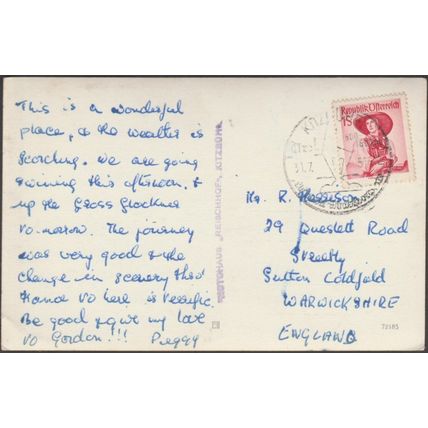 This is a wonderful
place, & the weather is
scorching. We are going
swimming this afternoon, &
up the Gross Glockner
to-morrow. The journey
was very good & the
change in scenery thro'
France to here is terrific.
Be good & give my love
to Gordon!!! Peggy
PHOTOHAUS „REISCHHOF" KITZBÜHEL
Republik Österreich
KITZBÜ
31.7.
R. Harrison
29 Queslett Road
Streetly
Sutton Coldfield
WARWICKSHIRE
ENGLAND
72185